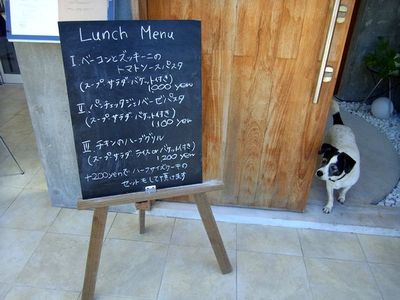 Lunch Menu
I ベーコンとズッキーニの
トマトソースパスタ
(スープ サラダ バゲット付き)
1000 yen
II パンチェッタジェノベーゼパスタ
(スープ サラダ バゲット付き)
1100 yen
III チキンのハーブグリル
(スープ サラダ ライスorバゲット付き)
1200 yen
+200yenで、ハーフサイズケーキの
セットもして頂けます